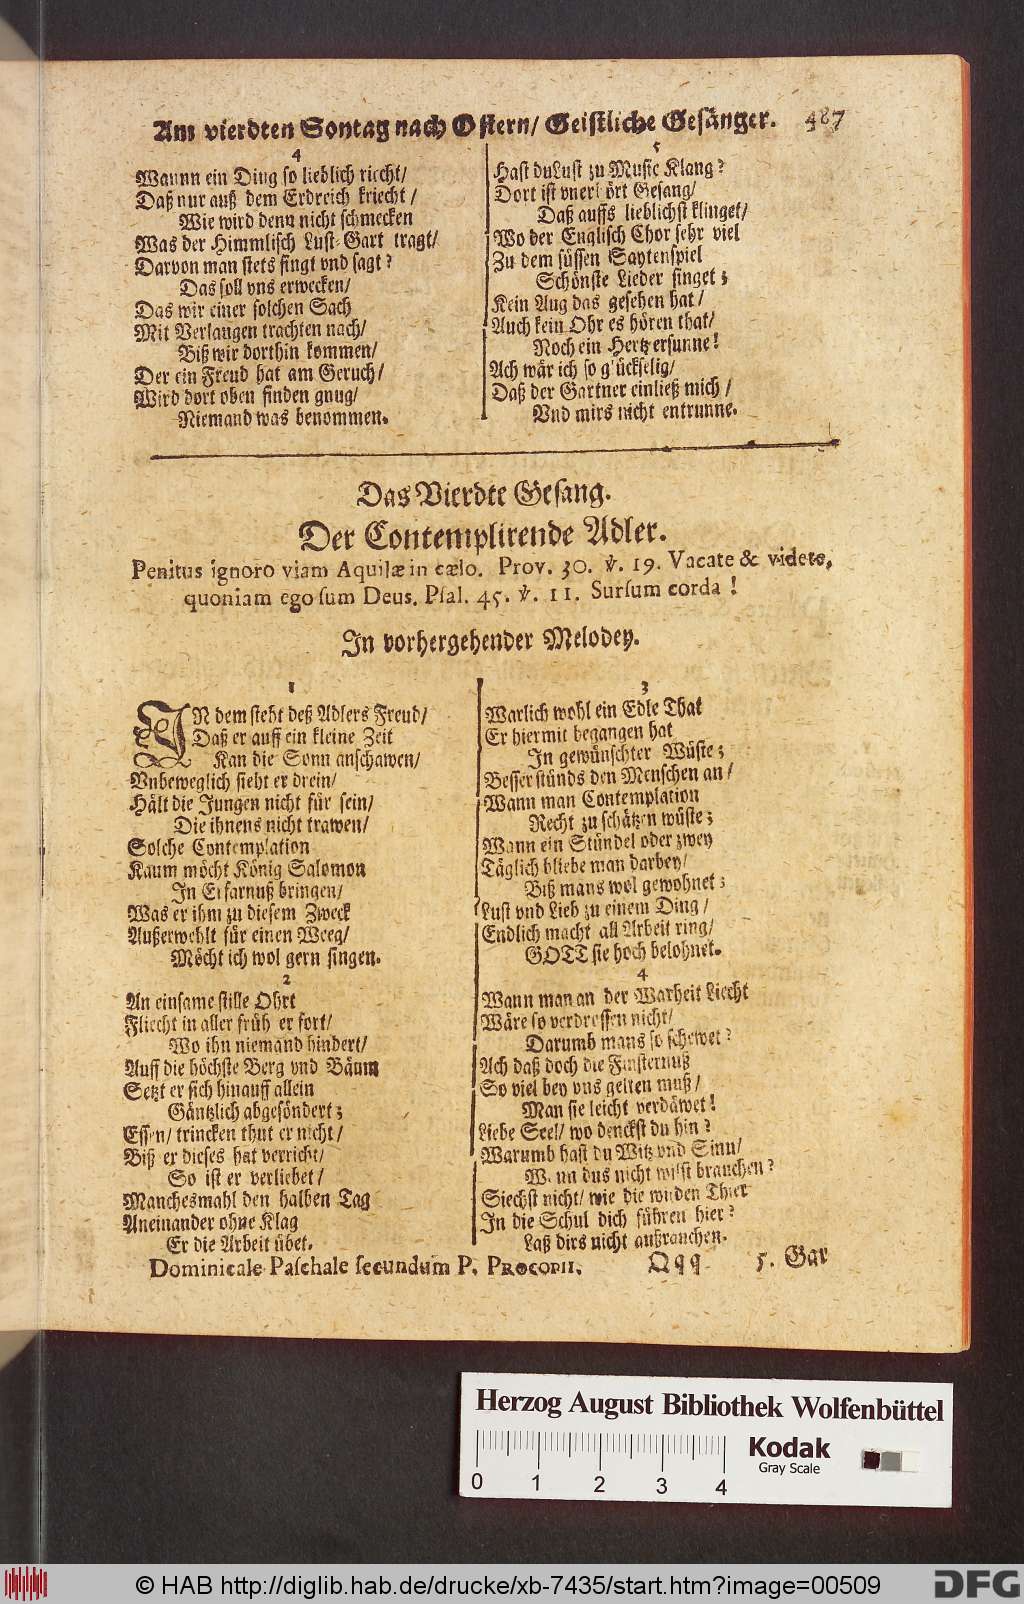 Am vierdten Sontag nach Ostern/ Geistliche Gesänger. 487
4
Wannn ein Ding so lieblich riecht/
Daß nur auß dem Erdreich kriecht/
Wie wird denn nicht schmecken
Was der Himmlisch Lust-Gart tragt/
Darvon man stets singt vnd sagt?
Das soll vns erwecken/
Das wir einer solchen Sach
Mit Verlangen trachten nach/
Biß wir dorthin kommen/
Der ein Freud hat am Geruch/
Wird dort oben finden gnug/
Niemand was benommen.
5
Hast du Lust zu Music Klang?
Dort ist vnerhört Gesang/
Daß auffs lieblichst klinget/
Wo der Englisch Chor sehr viel
Zu dem süssen Saytenspiel
Schönste Lieder singet;
Kein Aug das gesehen hat/
Auch kein Ohr es hören that/
Noch ein Hertz ersunne!
Ach wär ich so glückselig/
Daß der Gartner einließ mich/
Vnd mirs nicht entrunne.
Das Vierdte Gesang.
Der Contemplirende Adler.
Penitus ignoro viam Aquilæ in cælo. Prov. 30. ℣. 19. Vacate & videte,
quoniam ego sum Deus. Psal. 45. ℣. 11. Sursum corda!
In vorhergehender Melodey.
1
IN dem steht deß Adlers Freud/
Daß er auff ein kleine Zeit
Kan die Sonn anschawen/
Vnbeweglich sieht er drein/
Hält die Jungen nicht für sein/
Die ihnens nicht trawen/
Solche Contemplation
Kaum möcht König Salomon
In Erfarnuß bringen/
Was er ihm zu diesem Zweck
Außerwehlt für einen Weeg/
Möcht ich wol gern singen.
2
An einsame stille Ohrt
Fliecht in aller früh er fort/
Wo ihn niemand hindert/
Auff die höchste Berg vnd Bäum
Setzt er sich hinauff allein
Gäntzlich abgesöndert;
Essen/ trincken thut er nicht/
Biß er dieses hat verricht/
So ist er verliebet/
Manchesmahl den halben Tag
Aneinander ohne Klag
Er die Arbeit übet.
3
Warlich wohl ein Edle That
Er hiermit begangen hat
In gewünschter Wüste;
Besser stünds den Menschen an/
Wann man Contemplation
Recht zu schätzen wüste;
Wann ein Stündel oder zwey
Täglich bliebe man darbey/
Biß mans wol gewohnet;
Lust vnd Lieb zu einem Ding/
Endlich macht all Arbeit ring/
GOTT sie hoch belohnet.
4
Wann man an der Warheit Liecht
Wäre so verdrossen nicht/
Darumb mans so schewet?
Ach daß doch die Finsternuß
So viel bey vns gelten muß/
Man sie leicht verdäwet!
Liebe Seel/ wo denckst du hin?
Warumb hast du Witz vnd Sinn/
Wann dus nicht wilst brauchen?
Siechst nicht/ wie die wilden Thier
In die Schul dich führen hier?
Laß dirs nicht außrauchen.
Dominicale Paschale secundum P. PROCOPII. Qqq 5. Gar
Herzog August Bibliothek Wolfenbüttel
Kodak
Gray Scale
0 1 2 3 4
© HAB http://diglib.hab.de/drucke/xb-7435/start.htm?image=00509
DFG